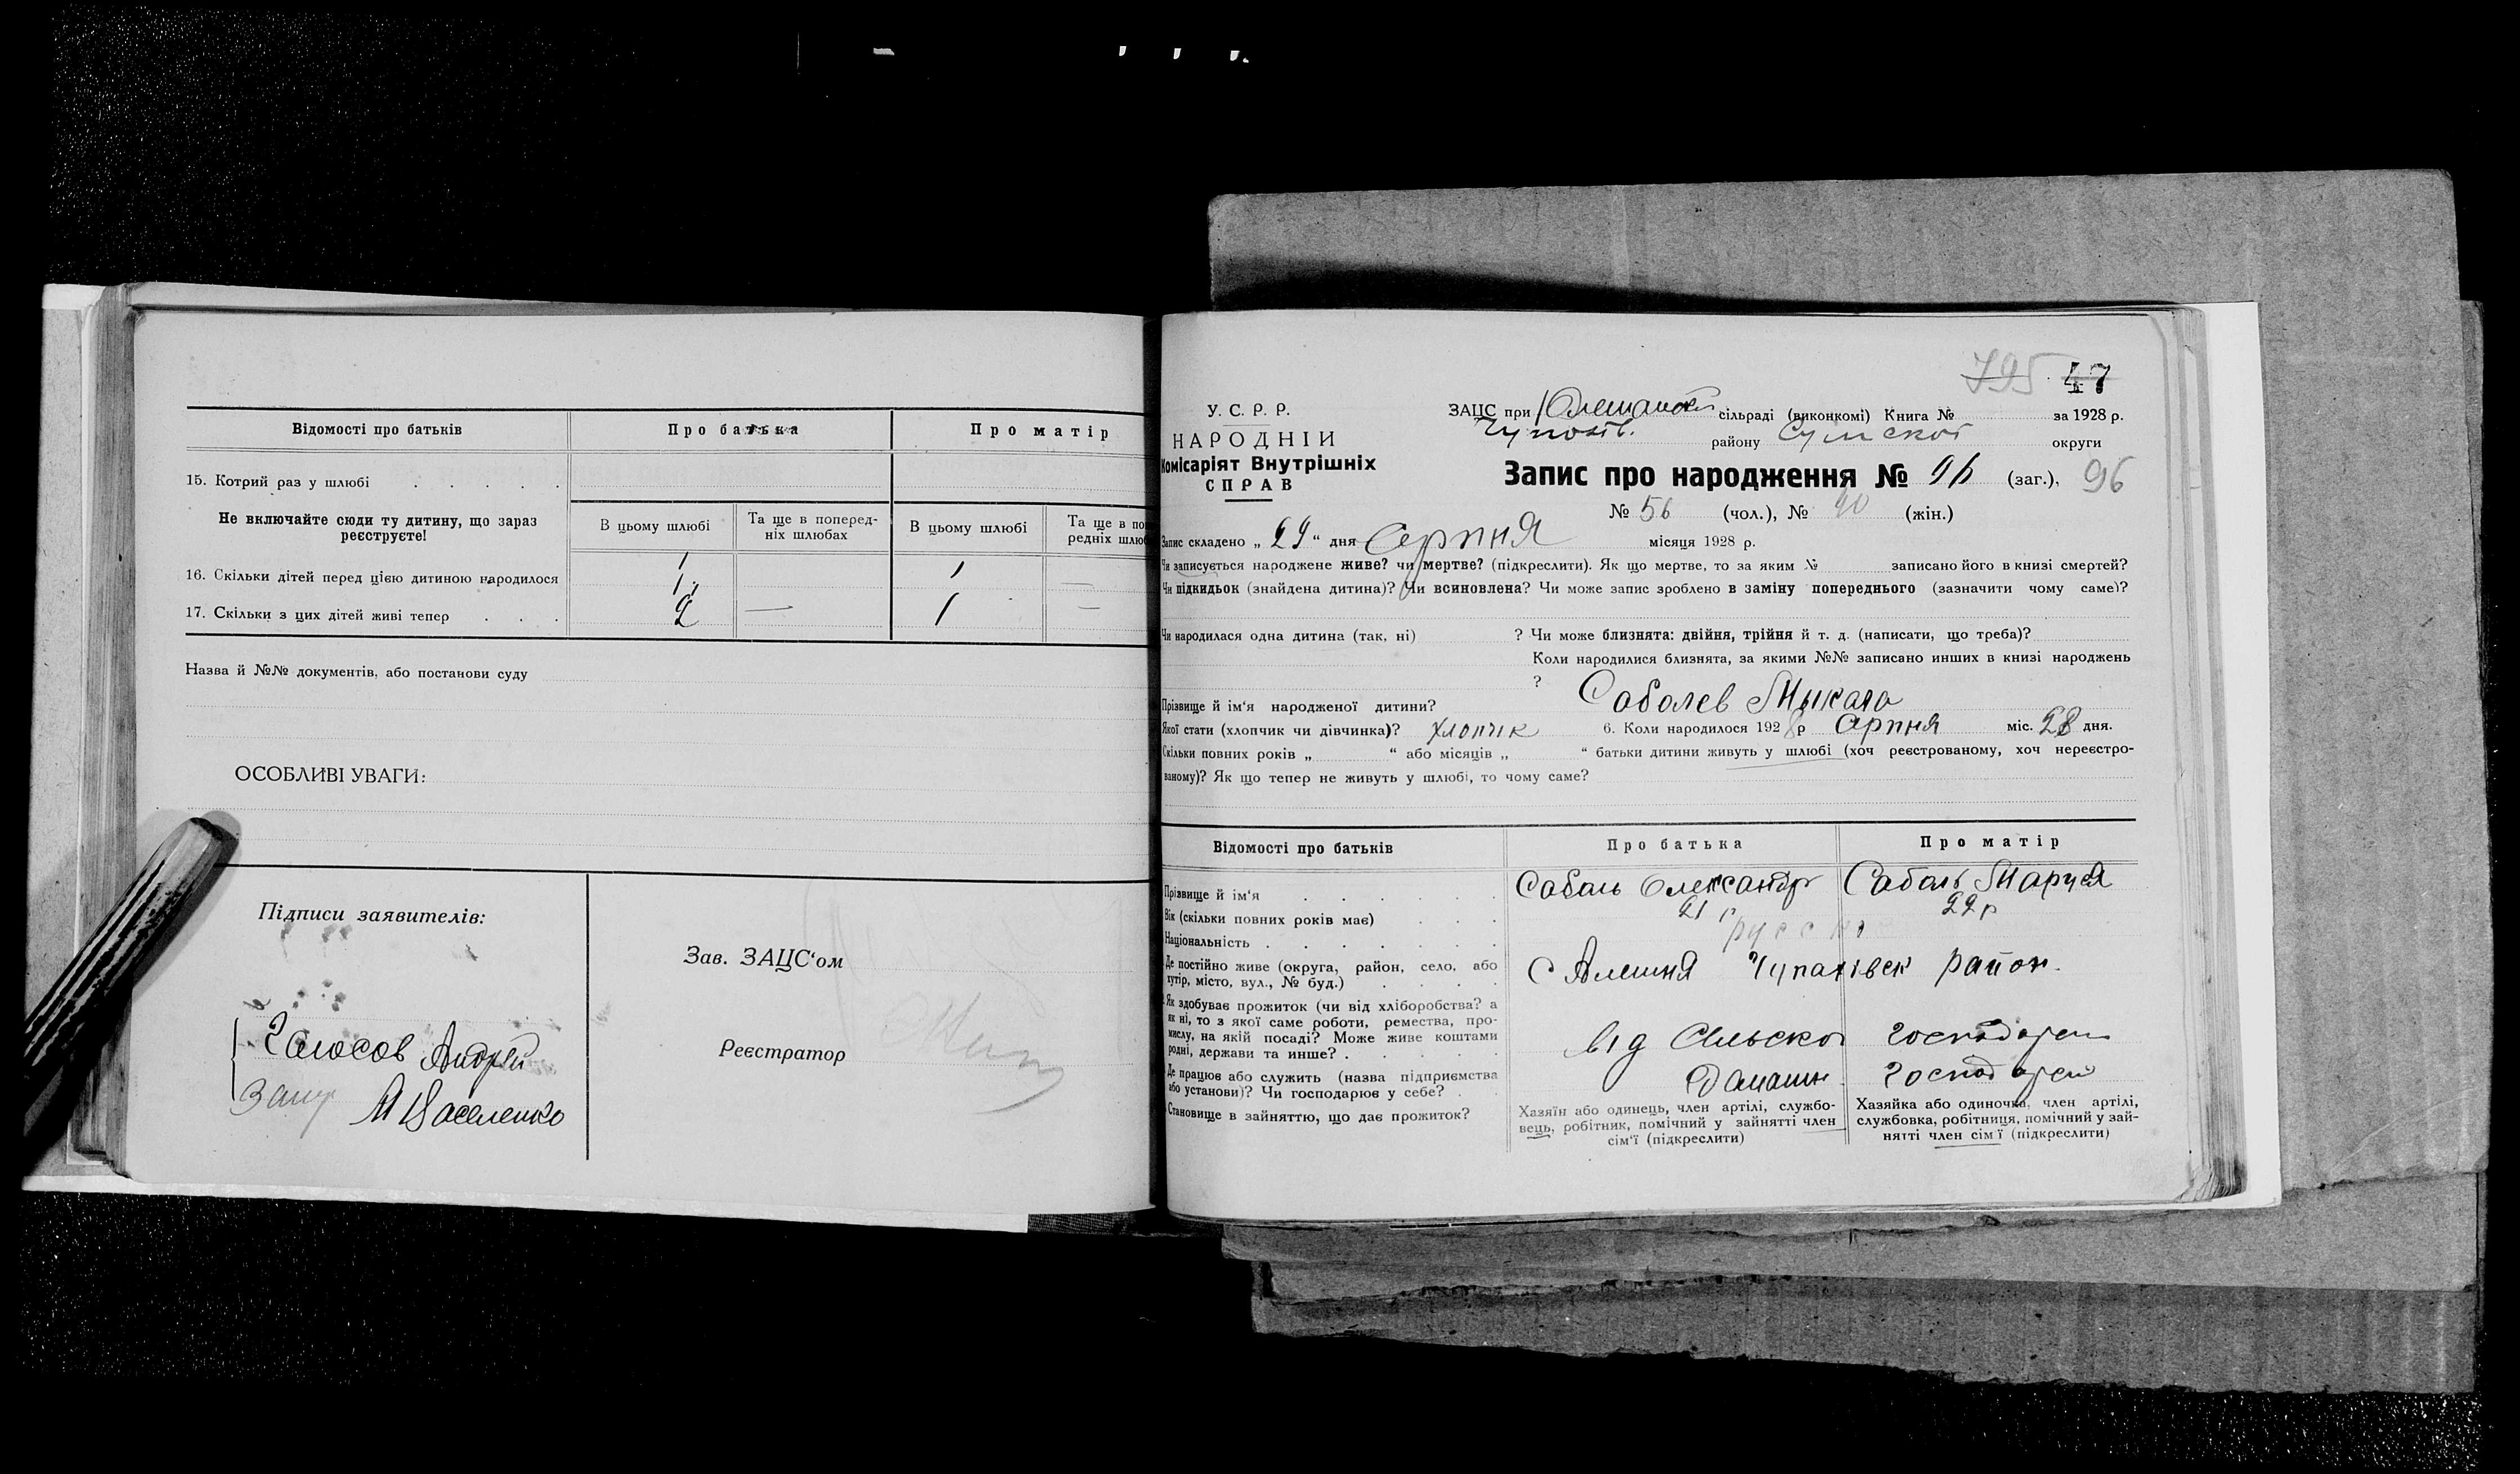 Відомості про батьків
Про батька
Про матір
15. Котрий раз у шлюбі
Не включайте сюди ту дитину, що зараз реєструєте!
В цьому шлюбі
Та ще в поперед-
ніх шлюбах
В цьому шлюбі
Та ще в по
редніх шлюб
16. Скільки дітей перед цією дитиною народилося
1
1
—
17. Скільки з цих дітей живі тепер
2 — 1 —
Назва й №№ документів, або постанови суду
ОСОБЛИВІ УВАГИ:
Підписи заявителів:
Голосов Андрей
М Василенко
Зав. ЗАЦС‘ом
Реєстратор
795 47
У. С. Р. Р.
НАРОДНІЙ
Комісаріят Внутрішніх
СПРАВ
ЗАЦС при сільраді (виконкомі) Книга № за 1928 р.
району Сумской округи
Запис про народження № 96 (заг.), 96
№ 56 (чол.), № 40 (жін.)
Запис складено „ 29 “ дня Серпня місяця 1928 р.
Чи записується народжене живе? чи мертве? (підкреслити). Як що мертве, то за яким № записано його в книзі смертей?
Чи підкидьок (знайдена дитина)? Чи всиновлена? Чи може запис зроблено в заміну попереднього (зазначити чому саме)?
Чи народилася одна дитина (так, ні) ? Чи може близнята: двійня, трійня й т. д. (написати, що треба)?
Коли народилися близнята, за якими №№ записано инших в книзі народжень
?
Прізвище й ім‘я народженої дитини? Соболев Мыкола
Якої стати (хлопчик чи дівчинка)? Хлопчік 6. Коли народилося 1928 р Серпня міс. 28 дня.
Скільки повних років „ “ або місяців „ “ батьки дитини живуть у шлюбі (хоч реєстрованому, хоч нереєстро-
ваному)? Як що тепер не живуть у шлюбі, то чому саме?
Відомості про батьків
Про батька
Про матір
Прізвище й ім‘я
Соболь Олександр
Соболь Маруся
Вік (скільки повних років має)
21 р
22 р
Національність
русски
Де постійно живе (округа, район, село, або
хутір, місто, вул., № буд.)
С Алешня Чупахівск район.
Як здобуває прожиток (чи від хліборобства? а
як ні, то з якої саме роботи, ремества, про-
мислу, на якій посаді? Може живе коштами
родні, держави та инше?
Від Сільског господарси
Де працює або служить (назва підприємства
або установи)? Чи господарює у себе?
Домашн господарси
Становище в зайняттю, що дає прожиток?
Хазяїн або одинець, член артілі, службо-
вець, робітник, помічний у зайнятті член
сім‘ї (підкреслити)
Хазяйка або одиночка, член артілі,
службовка, робітниця, помічний у зай-
нятті член сім‘ї (підкреслити)